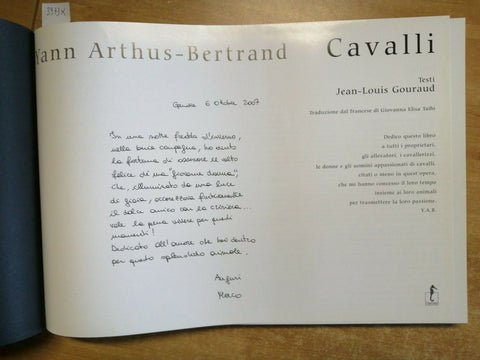 3973X
Yann Arthus-Bertrand
Cavalli
Testi
Jean-Louis Gouraud
Traduzione dal francese di Giovanna Elisa Taibi
Genova 6 Ottobre 2007
In una notte fredda d'inverno,
nella buia campagna, ho avuto
la fortuna di osservare il volto
felice di una "giovane donna",
che, illuminato da una luce
di gioia, accarezzava furtivamente
il dolce amico con la criniera...
vale la pena vivere per questi
momenti!
Dedicato all'amore che hai dentro
per questo splendido animale.
Auguri
Marco
Dedico questo libro
a tutti i proprietari,
gli allevatori, i cavallerizzi,
le donne e gli uomini appassionati di cavalli,
citati o meno in quest'opera,
che mi hanno concesso il loro tempo
insieme ai loro animali
per trasmettere la loro passione.
Y.A.B.